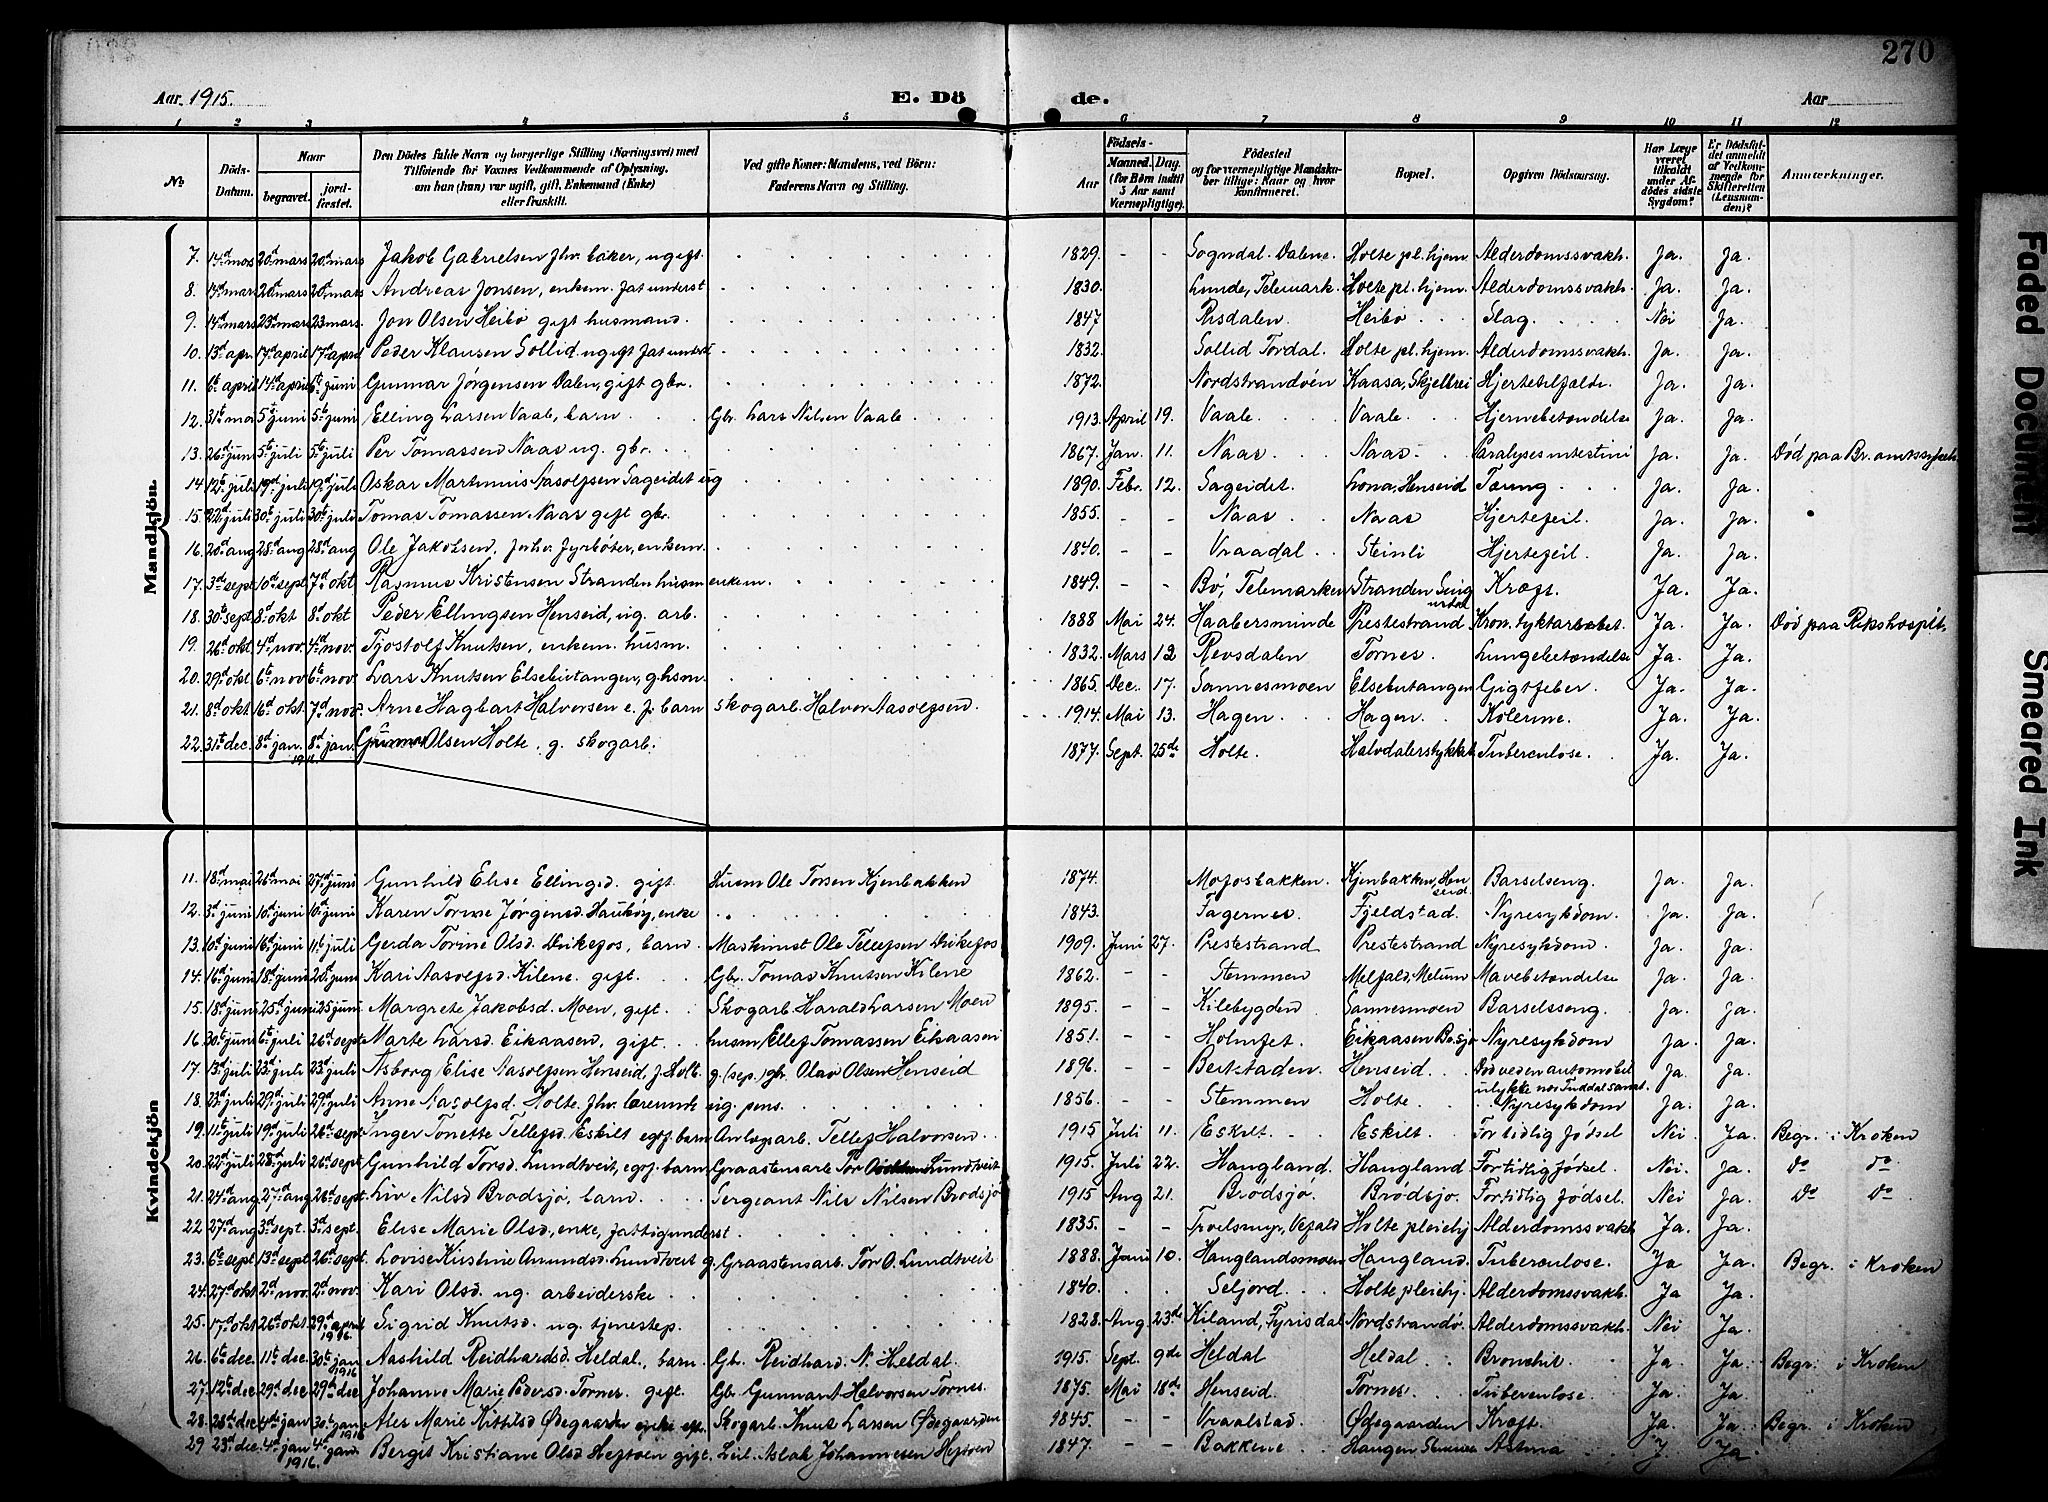 270
Aar 1915. E. Dö de. Aar
1 2 3 4 5 6 7 8 9 10 11 12
No Döds-Datum. Naar begravet. jordfæstet. Den Dödes fulde Navn og borgerlige Stilling (Næringsvei) med Tilföiende for Voxnes Vedkommende af Oplysning, om han (hun) var ugift, gift, Enkemand (Enke) eller fraskilt. Ved gifte Koner: Mandens, ved Börn: Faderens Navn og Stilling. Aar Födsels- Maaned. Dag. (for Börn indtil 5 Aar samt Værnepligtige). Födested og for værnepligtige Mandskaber tillige: Naar og hvor konfirmeret. Bopæl. Opgiven Dödsaarsag. Har Læge været tilkaldt under Afdödes sidste Sygdom? Er Dödsfaldet anmeldt af Vedkommende for Skifteretten (Lensmanden)? Anmærkninger.
Mandkjön.
7. 14d mars 20d mars 20d mars Jakob Gabrielsen fhv. baker, ugift 1829. - - Sogndal. Dalene. Holte pl. hjem. Alderdomssvakh. Ja. Ja.
8. 14d mars 20d mars 20d mars Andreas Jonsen, enkem. fatunderst 1830. Lunde, Telemark. Holte pl. hjem. Alderdomssvakh. Ja. Ja.
9. 14d mars 23d mars 23 mars. Jon Olsen Heibø gift husmand. 1847 Risdalen. Heibø Slag. Nei Ja.
10. 13d apr. 17d april 17d april Peder Klausen Sollid ugift fatunderst 1832. Sollid Tørdal. Holte pl. hjem. Alderdomssvakh. Ja. Ja.
11. 6t april 14d april 6t juni Gunnar Jørgensen Dalen, gift gbr. 1872. Nordstrandøen Kaasa, Skjelbrei Hjertetilfælde. Ja. Ja.
12. 31t mai 5t juni 5t juni Elling Larsen Vaale, barn Gbr. Lars Nilsen Vaale 1913. April 19. Vaale. Vaale. Hjernebetændelse Ja. Ja.
13. 26d juni 5t juli 5t juli Per Tomassen Naas ug. gbr. 1867. Jan. 11. Naas Naas Paralyses intestini Ja. Ja. Død paa Br. amtssykeh.
14. 12t juli 19d juli 19d juli Oskar Martinius Aasolfsen Sageidet ug 1890. Febr. 12. Sageidet. Lona, Henseid Tæring Ja. Ja.
15. 22d juli 30t juli 30t juli Tomas Tomassen Naas gift gbr. 1855. - - Naas Naas Hjertefeil. Ja. Ja.
16. 20d aug 28d aug 28d aug Ole Jakobsen, forhv. fyrbøter, enkem. 1840. - - Vraadal Steinli Hjertefeil. Ja. Ja.
17. 3d sept 10d sept 7d okt Rasmus Kristensen Stranden husm enkem. 1849. - - Bø, Telemarken Stranden Kræft. Ja. Ja.
18. 30t sept 8d okt 8d okt Peder Ellingsen Henseid, ug. arb. 1888 Mai 24. Haabersminde Prestestrand Kron. tyktarmbet. Ja. Ja. Død paa Rikshospit.
19. 26d okt 4d nov. 4d nov. Tjostolf Knutsen, enkem. husm. 1832. Mars 12 Revsdalen Tornes. Lungebetændelse Ja. Ja.
20. 29d okt 6t nov 6t nov. Lars Knutsen Elsebutangen, g. hsm. 1865. Dec. 17. Sannesmoen Elsebutangen Gigtfeber. Ja. Ja.
21. 8d okt 16d okt. 7d nov. Arne Hagbart Halvorsen e. f. barn skogarb. Halvor Aasolfsen. 1914. Mai 13. Hagen. Hagen. Kolerine. Ja. Ja.
22. 31t dec. 8d jan. 8d jan. Gunnar Olsen Holte, g. skogarb. 1877. Sept. 25de Holte. Halvdalerstykket Tuberculose. Ja. Ja.
1916.
Kvindekjön
11. 18d mai 26d mai 27d juni Gunhild Elise Ellingsd. gift Husm Ole Torsen Kjenbakken 1874. Mofosbakken. Kjenbakken, Henseid. Barselseng. Ja. Ja.
12. 3d juni 10d juni 10d juni Karen Torine Jørgensd. Haukøy, enke 1843. Fagernes. Fjeldstad. Nyresykdom. Ja. Ja.
13. 10d juni 16d juni 11t juli Gerda Torine Olsd. Dirikefos, barn. Maskinist Ole Tellefsen Dirikefos 1909. Juni 27. Prestestrand Prestestrand Nyresykdom. Ja. Ja.
14. 16d juni 18d juni 20d juni Kari Aasolfsd. Kilene. gift. Gbr. Tomas Knutsen Kilene 1862. - - Stemmen Melfald, Melum Mavebetændelse Ja. Ja.
15. 18d juni 25d juni 25 juni Margrete Jakobsd. Moen, gift. Skogarb. Harald Larsen Moen 1895. - - Kilebygden Sannesmoen Barselsseng. Ja. Ja.
16. 30t juni 6t juli 26d sept Marte Larsd. Eikaasen, gift. husm. Ellef Tomassen Eikaasen 1851. - - Holmfet. Eikaasen Bosjø Nyresykdom Ja. Ja.
17. 13d juli 23d juli 23d juli Asborg Elise Aasolfsen Henseid, f. Holt. g. (sep.) gbr. Olav Olsen Henseid 1896. - - Bekstaden. Henseid. Død ved en automobilulykke nær Tuddal sanat. Ja. Ja.
18. 23d juli 29d juli 29d juli Anne Aasolfsd. Holte fhv. lærerinde ug. pens. 1856. - - Stemmen Holte. Nyresykdom Ja. Ja.
19. 11t juli 19d juli 26d sept Inger Tonette Tellefsd. Eskilt egtf. barn Anlægsarb. Tellef Halvorsen. 1915 Juli 11. Eskilt. Eskilt. For tidlig fødsel Nei Ja. Begr. i Kroken
20. 22d juli 28d juli 26d sept Gunhild Torsd. Lundtveit, egtf. barn Graastensarb Tor Lundtveit 1915. Juli 22. Haugland Haugland For tidlig fødsel. Nei. Ja. do do
21. 24d aug 27d aug 26d sept. Liv Nilsd Brødsjø, barn. Sergeant Nils Nilsen Brødsjø 1915 Aug 21. Brødsjø. Brødsjø. For tidlig fødsel. Nei Ja. do do
22. 27d aug 3d sept. 3d sept. Elise Marie Olsd, enke, fattigunderst 1835. - - Troelsmyr, Vefald Holte pleiehj Alderdomssvakh Ja. Ja.
23. 6t sept 13d sept 26d sept. Lovise Kirstine Amundsd. Lundtveit g. Graastensarb. Tor O. Lundtveit 1888. Juni 10. Hauglandsmoen Haugland. Tuberculose. Ja Ja. Begr. i Kroken
24. 27d okt 2d nov. 2d nov. Kari Olsd. ug. arbeiderske 1840. Seljord. Holte pleiehj. Alderdomssvakh. Ja Ja.
25. 17d okt 26d okt 29d april 1916. Sigrid Knutsd. ug. tjenestep. 1828. Aug 23de Kiland, Fyrisdal Nordstrandø. Alderdomssvakh. Nei Ja.
26. 6t dec. 11t dec. 30t jan 1916 Aashild Reidhardsd. Heldal, barn Gbr. Reidhard N. Heldal. 1915. Sept. 9de Heldal Heldal Bronchit. Ja. Ja. Begr. i Kroken
27. 12t dec 29d dec 29d dec Johanne Marie Pedersd. Tornes gift. Gbr. Gunnar Halvorsen Tornes. 1875. Mai 18de Henseid. Tornes. Tuberculose. Ja. Ja.
28. 28d dec 4de jan 30t jan 1916 Ales Marie Kittilsd Ødegaarden Skogarb. Knut Larsen Ødegaarden 1845. - - Vraalstad. Ødegaarden Kræft. Ja. Ja. Begr. i Kroken
29 23d dec. 4d jan 4d jan. Bergit Kristiane Olsd Heftøen gift. Leil. Aslak Johannesen Heftøen 1847. - - Bakkene Haugen Astma J. Ja
1916.
Faded Document
Smeared Ink